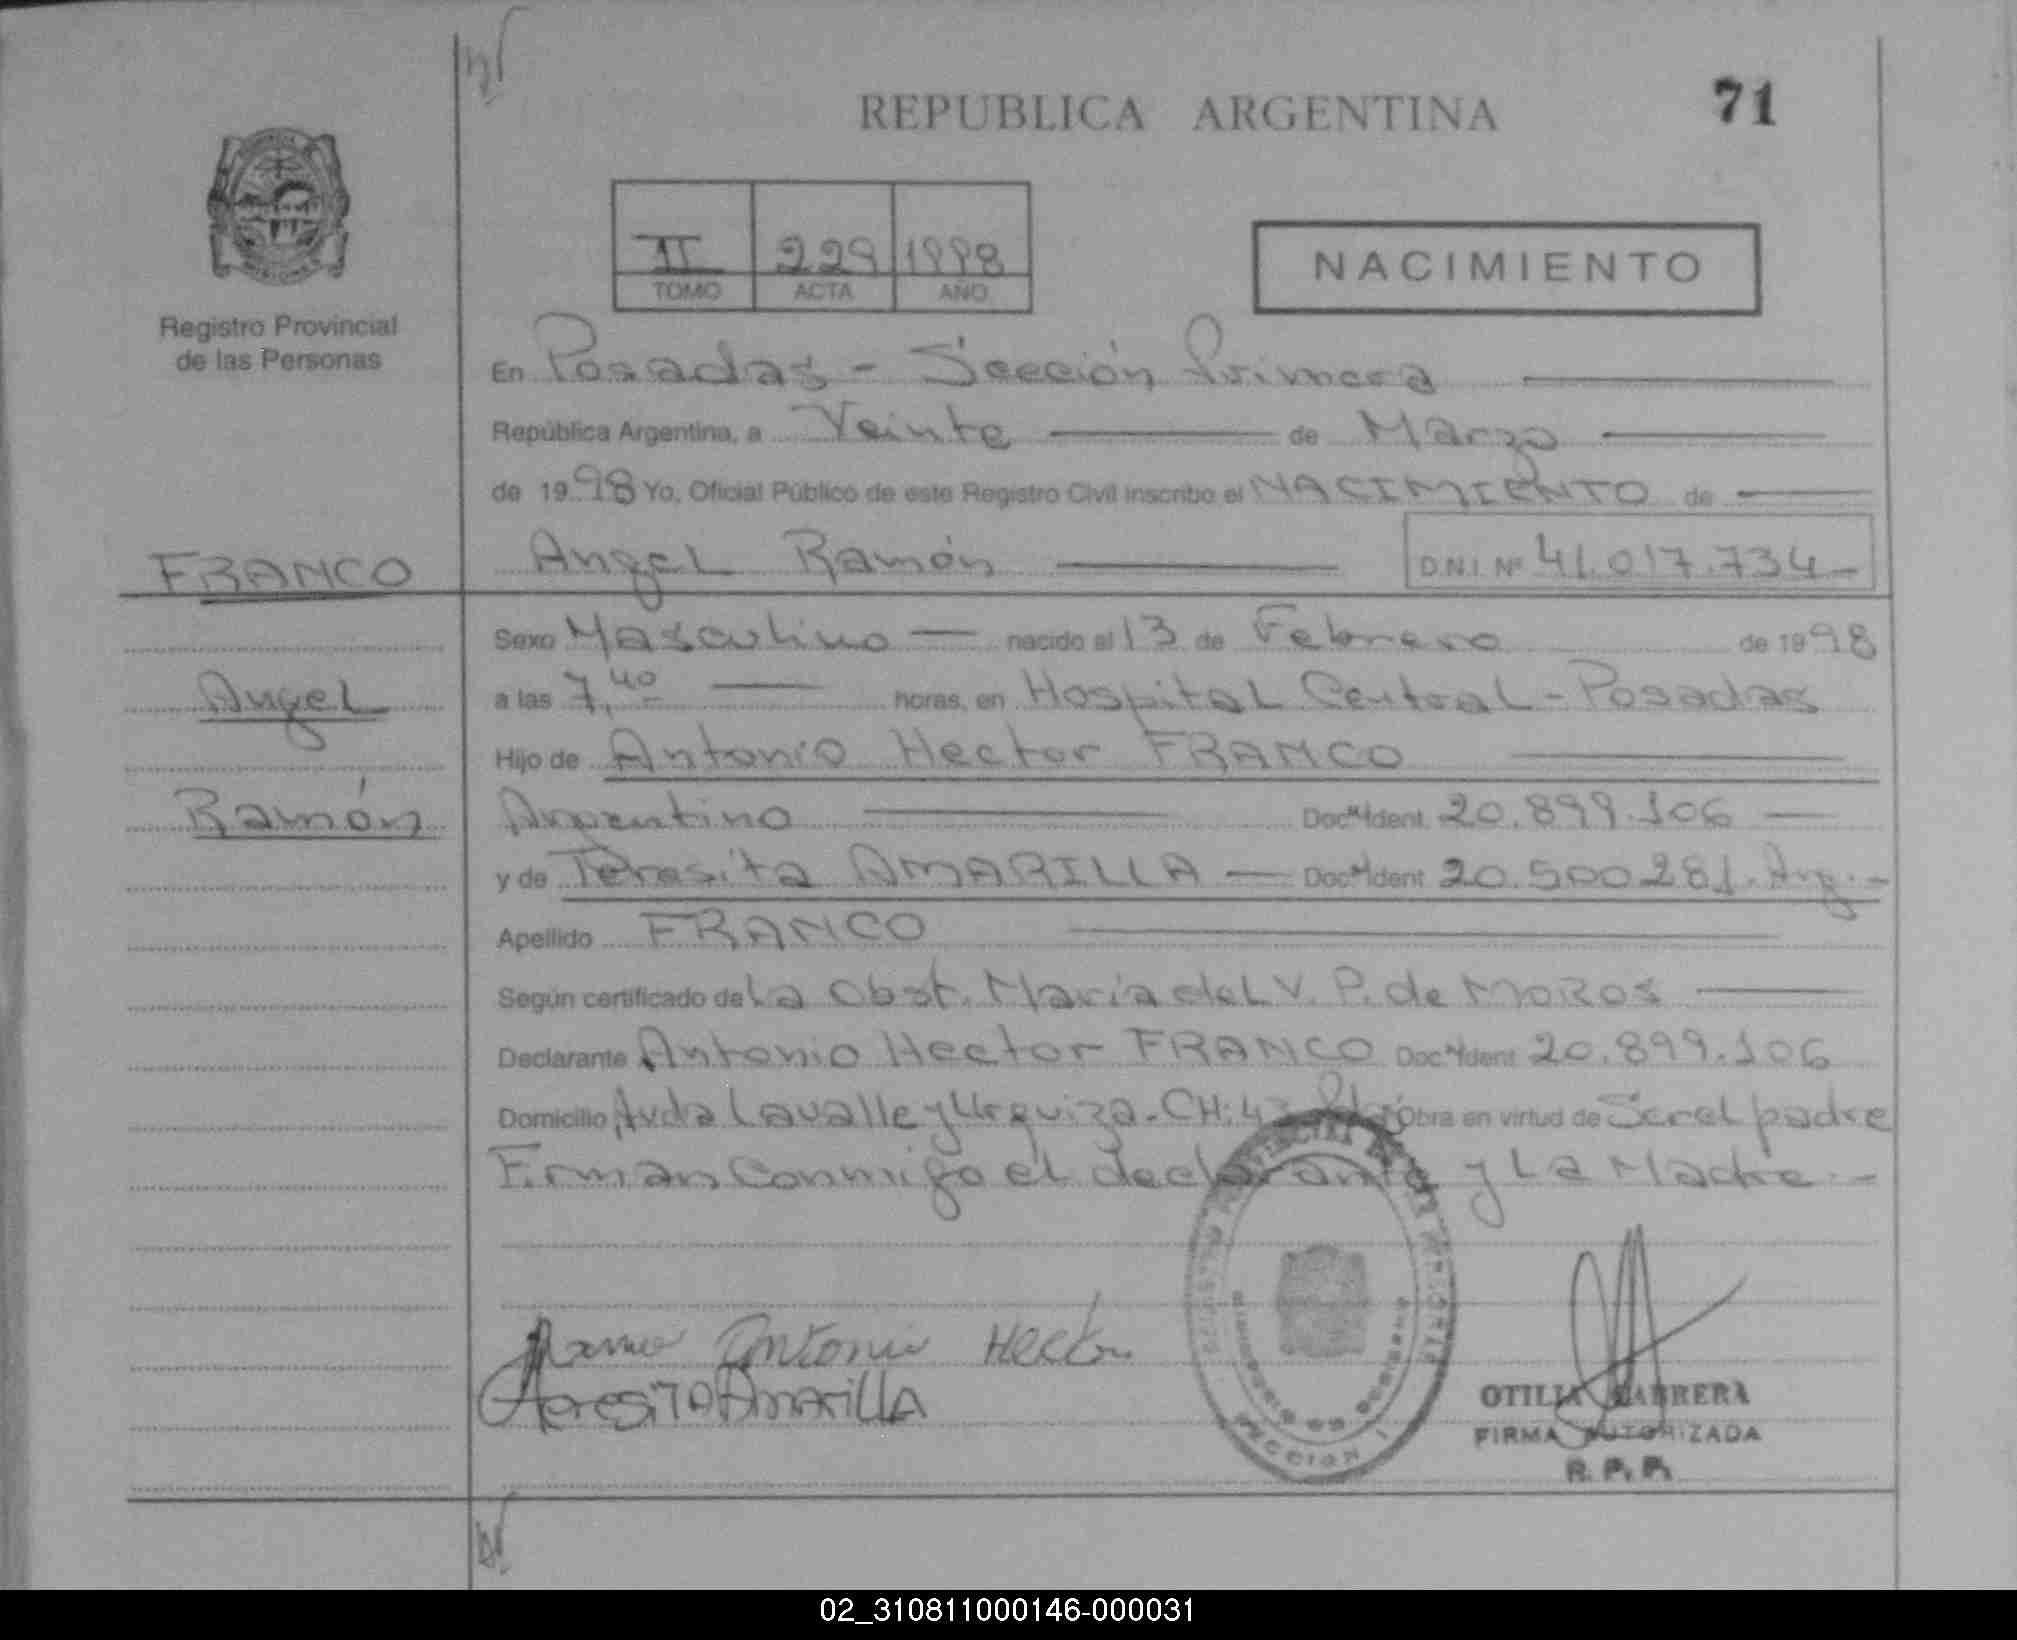 REPUBLICA ARGENTINA
71
II 229 1998
TOMO ACTA AÑO
NACIMIENTO
Registro Provincial
de las Personas
En Posadas - Sección Primera
República Argentina, a Veinte de Marzo
de 1998 Yo, Oficial Público de este Registro Civil inscribo el NACIMIENTO de
FRANCO
Angel Ramón D.N.I. Nº 41.017.734-
Sexo Masculino nacido el 13 de Febrero de 1998
Angel
a las 7,40 horas, en Hospital Central - Posadas
Hijo de Antonio Hector FRANCO
Ramón
Argentino Doc. Ident. 20.899.106
y de Teresita AMARILLA Doc. Ident 20.500.281. Arg.-
Apellido FRANCO
Según certificado de La Obst. María del V. P. de MOROS
Declarante Antonio Hector FRANCO Doc. Ident 20.899.106
Domicilio Avda Lavalle y Urquiza - CH: 43 Obra en virtud de Ser el padre
Firman Conmigo el declarante y La Madre.-
Antonio Hector
Teresita Amarilla
SECCION 1
OTILIA CABRERA
FIRMA AUTORIZADA
R. P. P.
02_310811000146-000031